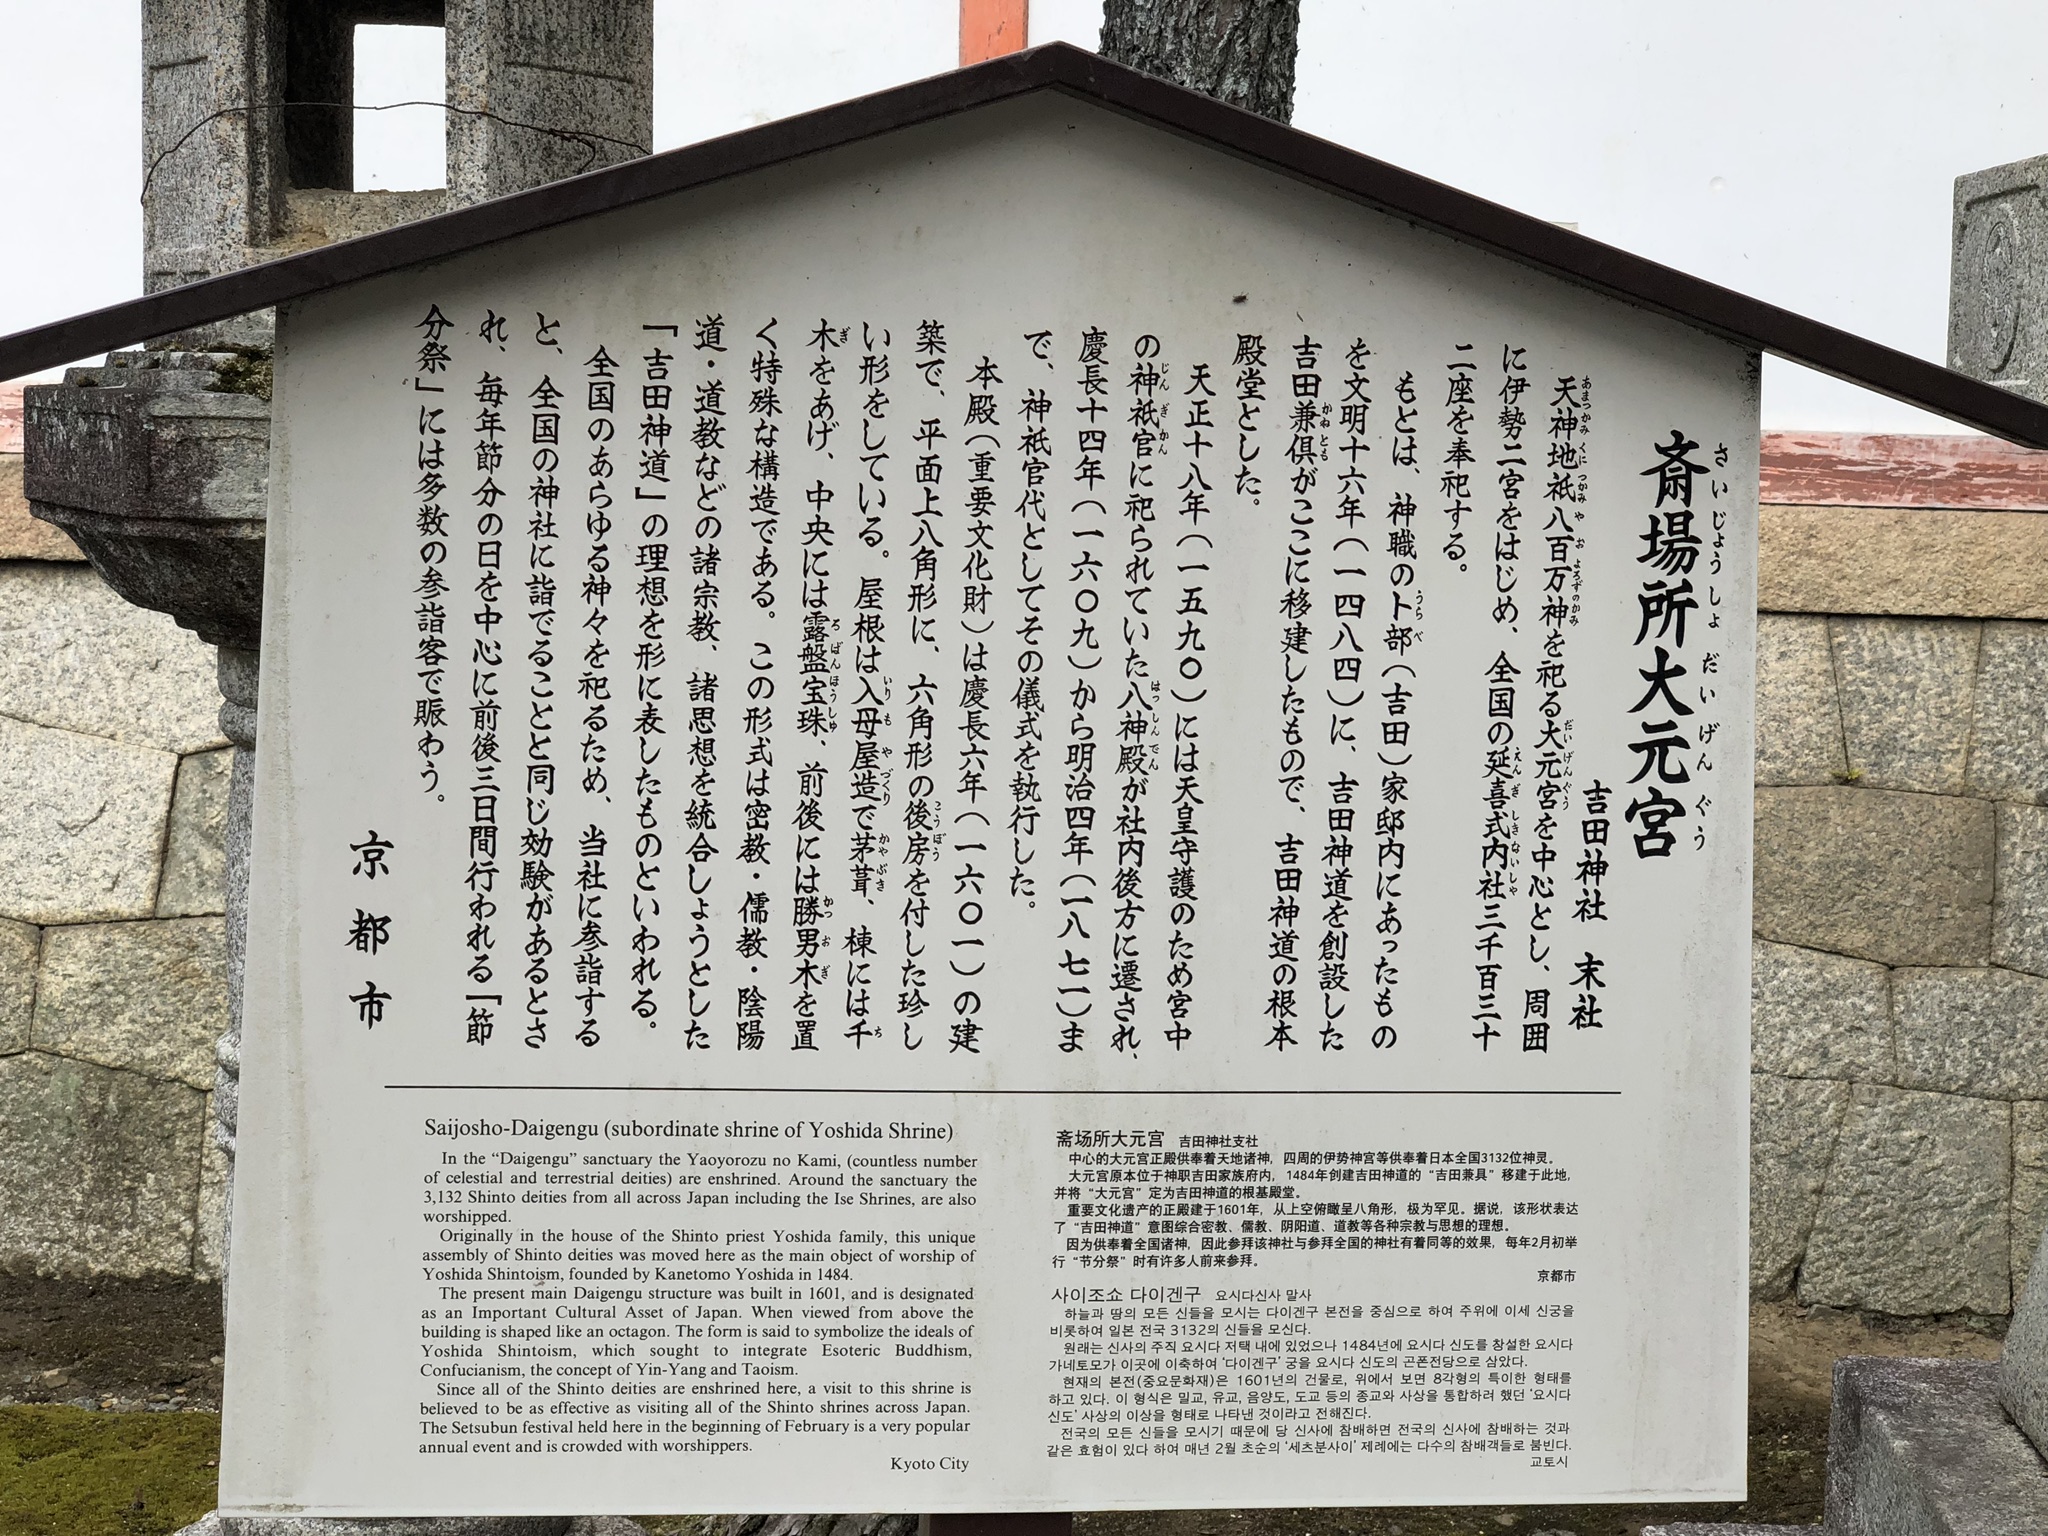 斎場所大元宮
さいじょうしょ だいげんぐう
吉田神社 末社
天神地祇八百万神を祀る大元宮を中心とし、周囲
に伊勢二宮をはじめ、全国の延喜式内社三千百三十
二座を奉祀する。
もとは、神職の卜部(吉田)家邸内にあったもの
を文明十六年(一四八四)に、吉田神道を創設した
吉田兼倶がここに移建したもので、吉田神道の根本
殿堂とした。
天正十八年(一五九〇)には天皇守護のため宮中
の神祇官に祀られていた八神殿が社内後方に遷され、
慶長十四年(一六〇九)から明治四年(一八七一)ま
で、神祇官代としてその儀式を執行した。
本殿(重要文化財)は慶長六年(一六〇一)の建
築で、平面上八角形に、六角形の後房を付した珍し
い形をしている。屋根は入母屋造で茅葺、棟には千
木をあげ、中央には露盤宝珠、前後には勝男木を置
く特殊な構造である。この形式は密教・儒教・陰陽
道・道教などの諸宗教、諸思想を統合しようとした
「吉田神道」の理想を形に表したものといわれる。
全国のあらゆる神々を祀るため、当社に参詣する
と、全国の神社に詣でることと同じ効験があるとさ
れ、毎年節分の日を中心に前後三日間行われる「節
分祭」には多数の参詣客で賑わう。
京都市
Saijosho-Daigengu (subordinate shrine of Yoshida Shrine)
In the “Daigengu” sanctuary the Yaoyorozu no Kami, (countless number
of celestial and terrestrial deities) are enshrined. Around the sanctuary the
3,132 Shinto deities from all across Japan including the Ise Shrines, are also
worshipped.
Originally in the house of the Shinto priest Yoshida family, this unique
assembly of Shinto deities was moved here as the main object of worship of
Yoshida Shintoism, founded by Kanetomo Yoshida in 1484.
The present main Daigengu structure was built in 1601, and is designated
as an Important Cultural Asset of Japan. When viewed from above the
building is shaped like an octagon. The form is said to symbolize the ideals of
Yoshida Shintoism, which sought to integrate Esoteric Buddhism,
Confucianism, the concept of Yin-Yang and Taoism.
Since all of the Shinto deities are enshrined here, a visit to this shrine is
believed to be as effective as visiting all of the Shinto shrines across Japan.
The Setsubun festival held here in the beginning of February is a very popular
annual event and is crowded with worshippers.
Kyoto City
斋场所大元宫 吉田神社支社
中心的大元宫正殿供奉着天地诸神，四周的伊势神宫等供奉着日本全国3132位神灵。
大元宫原本位于神职吉田家族府内，1484年创建吉田神道的“吉田兼具”移建于此地，
并将“大元宫”定为吉田神道的根基殿堂。
重要文化遗产的正殿建于1601年，从上空俯瞰呈八角形，极为罕见。据说，该形状表达
了“吉田神道”意图综合密教、儒教、阴阳道、道教等各种宗教与思想的理想。
因为供奉着全国诸神，因此参拜该神社与参拜全国的神社有着同等的效果，每年2月初举
行“节分祭”时有许多人前来参拜。
京都市
사이조쇼 다이겐구 요시다신사 말사
하늘과 땅의 모든 신들을 모시는 다이겐구 본전을 중심으로 하여 주위에 이세 신궁을
비롯하여 일본 전국 3132의 신들을 모신다.
원래는 신사의 주직 요시다 저택 내에 있었으나 1484년에 요시다 신도를 창설한 요시다
가네토모가 이곳에 이축하여 ‘다이겐구’ 궁을 요시다 신도의 곤폰전당으로 삼았다.
현재의 본전(중요문화재)은 1601년의 건물로, 위에서 보면 8각형의 특이한 형태를
하고 있다. 이 형식은 밀교, 유교, 음양도, 도교 등의 종교와 사상을 통합하려 했던 ‘요시다
신도’ 사상의 이상을 형태로 나타낸 것이라고 전해진다.
전국의 모든 신들을 모시기 때문에 당 신사에 참배하면 전국의 신사에 참배하는 것과
같은 효험이 있다 하여 매년 2월 초순의 ‘세츠분사이’ 제례에는 다수의 참배객들로 붐빈다.
교토시